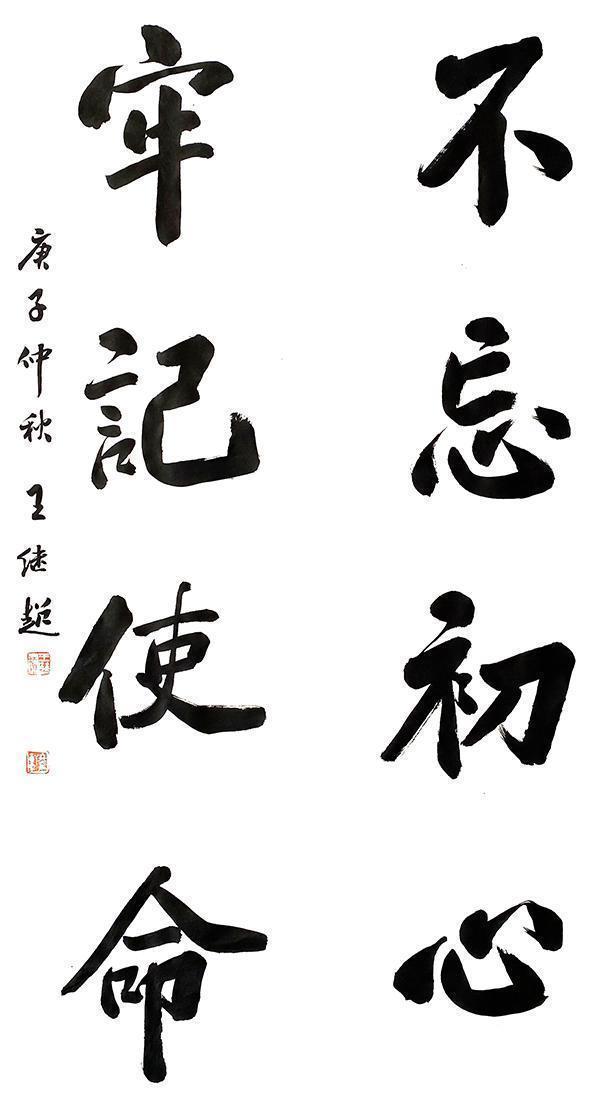 不忘初心
牢記使命
庚子仲秋 王继超